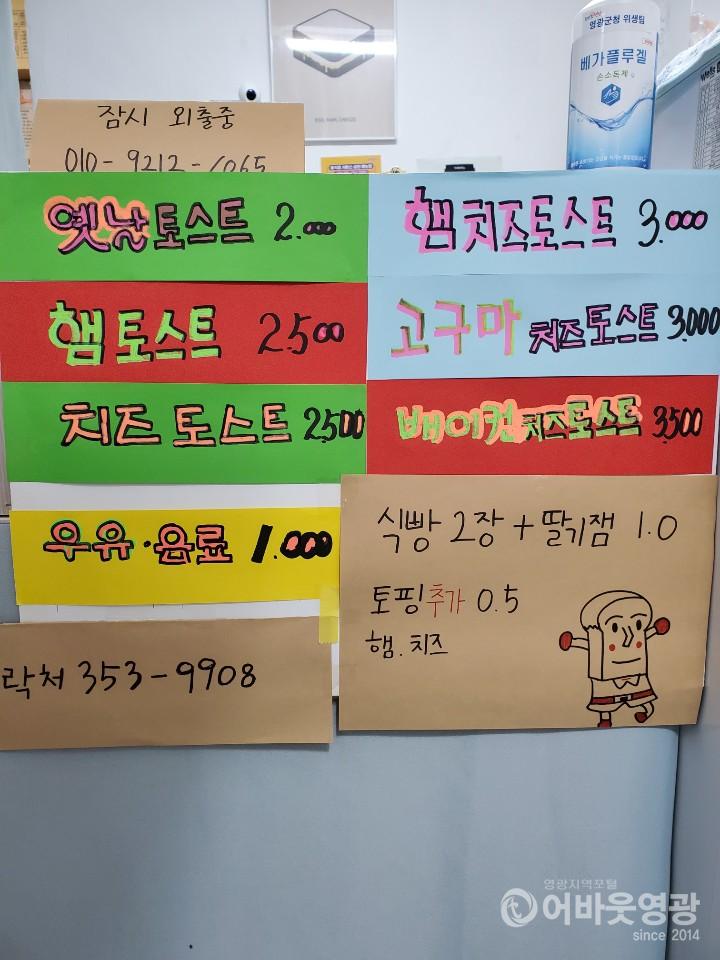 영광군청 위생팀
베가플루겔
손소독제
잠시 외출중
010-9212-1065
옛날토스트 2.000
햄토스트 2.500
치즈토스트 2,500
우유·음료 1.000
햄치즈토스트 3.000
고구마치즈토스트 3.000
베이컨치즈토스트 3,500
식빵 2장 + 딸기잼 1.0
토핑추가 0.5
햄.치즈
락처 353-9908
영광지역포털
어바웃영광
since 2014